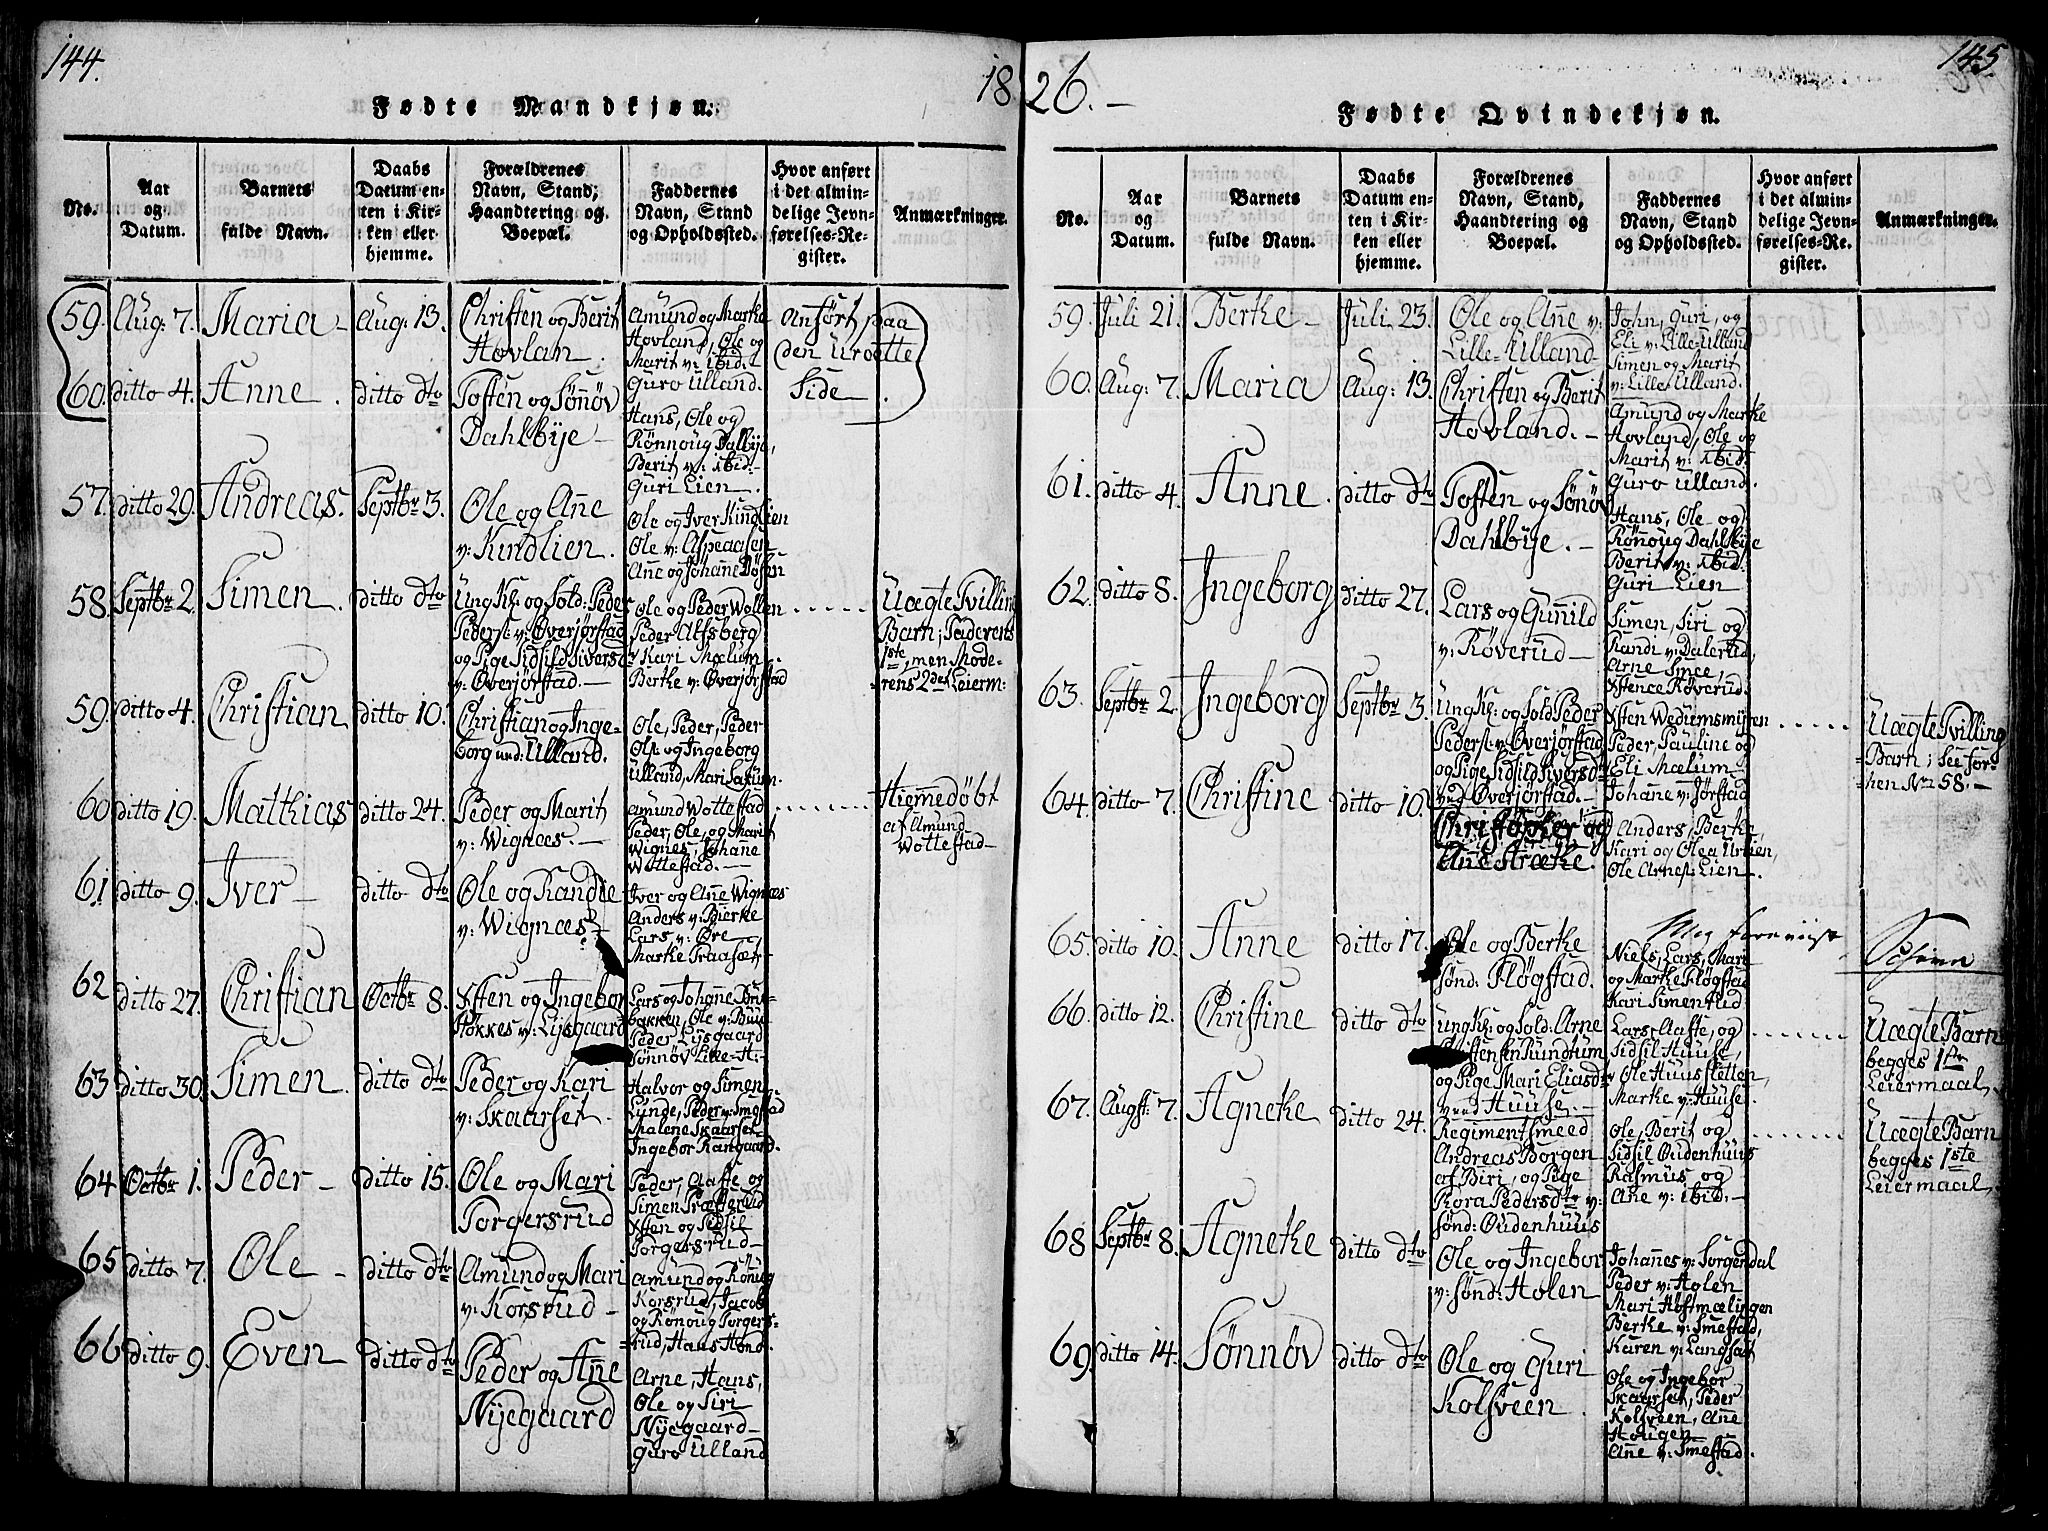 144.
18
Fødte Mandkjøn.
No.
Aar og Datum.
Barnets fulde Navn.
Daabs Datum enten i Kirken eller hjemme.
Forældrenes Navn, Stand, Haandtering og Boepæl.
Faddernes Navn, Stand og Opholdssted.
Hvor anført i det almindelige Jevnførelses-Register.
Anmærkninger.
59. Aug: 7. Maria - Aug: 13.
Christen og Berit
Hovlan.
Amund og Marke
Hovland, Ole og
Marit v: ibid.
Guro Ulland.
Anført paa
den urette
Side
60. ditto 4. Anne. ditto dto
Tosten og Sønøv
Dahlbye -
Hans, Ole og
Rønnoug Dalbye,
Berit v: ibid: -
Guri Lien.
57. ditto 29. Andreas. Septbr 3.
Ole og Anne
v: Kindlien.
Ole og Iver Kindlien
Ole v: Aspeaasen
Anne og Johanne Døsen
58. Septbr 2. Simen. ditto dto
Ung K: og Sold: Peder
Peders: v: Øverjørstad
og Pige Sidsild Siversdr
v: Øverjørstad. -
Ole og Peder Wollen
Peder Alfsberg
Kari Mælum
Berte v: Øverjørstad
Uægte Tvilling
Barn; Faderens
1ste, men Mode-
rens 2det Leierm:
59. ditto 4. Christian ditto 10.
Christian og Inge-
borg und: Ulland.
Ole, Peder, Peder
Ole og Ingeborg
Ulland, Mari
60 ditto 19. Mathias ditto 24.
Peder og Marit
v: Wignæs. -
Amund Wottestad
Peder, Ole, og Marit
Wignes, Johanne
Wottestad. -
Hiemmedøbt
af Amund
Wottestad -
61 ditto 9. Iver - ditto dto
Ole og Randie
v: Wignæs -
Iver og Anne Wignæs
Anders v: Bierke
Lars v: Øre
Marke Praasæt
62 ditto 27. Christian Octbr 8.
Xsten og Ingebor
Holkes v: Lysgaard
Lars og Johanne
bakken, Ole v: Buu
Peder Lysgaard
Sønnøv Lille-H: -
63 ditto 30. Simen. ditto dto
Peder og Kari
v: Skaarset.
Halvor og Simen
Lunde, Peder v: Smestad
Malene Skaarset
Ingebor Rangaard.
64 Octbr 1. Peder - ditto 15.
Ole og Mari
Torgersrud
Peder, Aaste og
Simen Præsterud
Xsten og Sidsil
Torgersrud -
65 ditto 7. Ole - ditto dto
Amund og Mari
v: Korsrud -
Amund og Rønnoug
Korsrud, Jacob
og Rønoug Torgers-
rud, Hans Hond.
66 ditto 9. Even ditto dto
Peder og Anne
Nyegaard
Arne, Hans,
Ole og Siri
Nyegaard -
Guro Ulland
26. -
145
Fødte Qvindekjøn.
No.
Aar og Datum.
Barnets fulde Navn.
Daabs Datum enten i Kirken eller hjemme.
Forældrenes Navn, Stand, Haandtering og Boepæl.
Faddernes Navn, Stand og Opholdssted.
Hvor anført i det almindelige Jevnførelses-Register.
Anmærkninger.
59. Juli 21. Berte - Juli 23.
Ole og Anne v:
Lille-Ulland
John, Guri, og
Eli v: Lille-Ulland
Simen og Marit
v: Lille Ulland.
60. Aug: 7. Maria Aug: 13.
Christen og Berit
Hovland. -
Amund og Marke
Hovland, Ole og
Marit v: ibid.
Guro Ulland.
61. ditto 4. Anne. ditto dto
Tosten og Sønøv
Dahlbye. -
Hans, Ole og
Rønnoug Dahlbye
Berit v: ibid.
Guri Lien
62. ditto 8. Ingeborg ditto 27.
Lars og Gunnild
v: Røverud -
Simen, Siri og
Randi v: Dalerud,
Arne Smee,
Xstence Røverud.
63. Septbr 2. Ingeborg Septbr 3.
Ung K: og Sold Peder
Peders: v: Øverjørstad
og Pige Sidsild Siversdr
ved Øverjørstad. -
Xsten Wedumsmyren
Peder, Pauline og
Eli Mælum
Johanne v: Jørstad
Uægte Tvilling
Barn; See for-
hen No 58. -
64. ditto 7. Christine ditto 10.
Christopher og
Anne Stræte.
Anders, Berte,
Kari og Olea Urlien,
Ole Arnes: Lien.
65. ditto 10. Anne ditto 17.
Ole og Berte
sønd: Fløgstad.
Niels, Lars, Mari
og Marke Fløgstad
Kari Simenstud
Mig foreviist
66. ditto 12. Christine ditto dto
Ung K: og Sold: Arne
Christensen Tundtum
og Pige Mari Eliasdr
ved Huuse. -
Lars, Aaste, og
Sidsil Huuse,
Ole Huusstetten,
Marke v: Huuse.
Uægte Barn
begges 1ste
Leiermaal.
67. Augst: 7. Agnethe ditto 24.
Regimentsmeed
Andreas Borgen
af Biri, og Pige
Kora Pedersdtr v:
sønd: Oudenhuus
Ole, Berit og
Sidsil Oudenhuus
Rasmus og
Anne v: ibid. -
Uægte Barn
begges 1ste
Leiermaal.
68 Septbr 8. Agnethe ditto dto
Ole og Ingebor
v: sønd: Holen
Johannes v: Sorgendal
Peder v: Holen
Mari Høstmælingen
Berte v: Smestad,
Karen v: Langsæt
69. ditto 14. Sønnøv ditto dto
Ole og Guri
Kolsveen.
Ole og Ingebor
Skaarset, Peder
Kolsveen, Anne
Hougen
Anne v: Smestad.